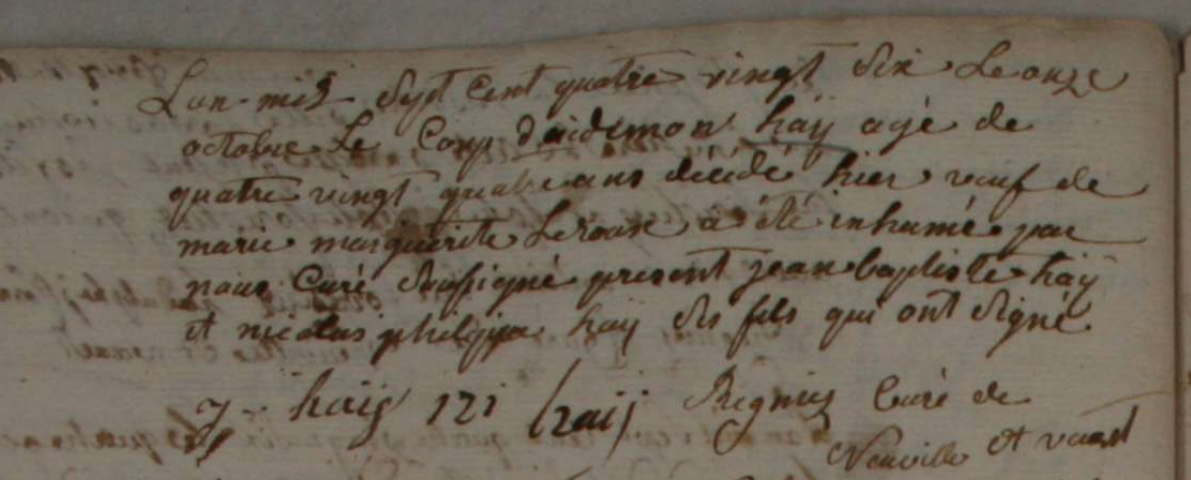 L'an mil Sept Cent quatre vingt dix Le onze
octobre Le Corp d'aidemon haÿ agé de
quatre vingt quatre ans décédé hier veuf de
marie marguerite Leroux a été inhumé par
nous Curé Soussigné present jean baptiste haÿ
et nicolas philippe haÿ Ses fils qui ont Signé
j haÿ haÿ Curé de
Neuville St vaast